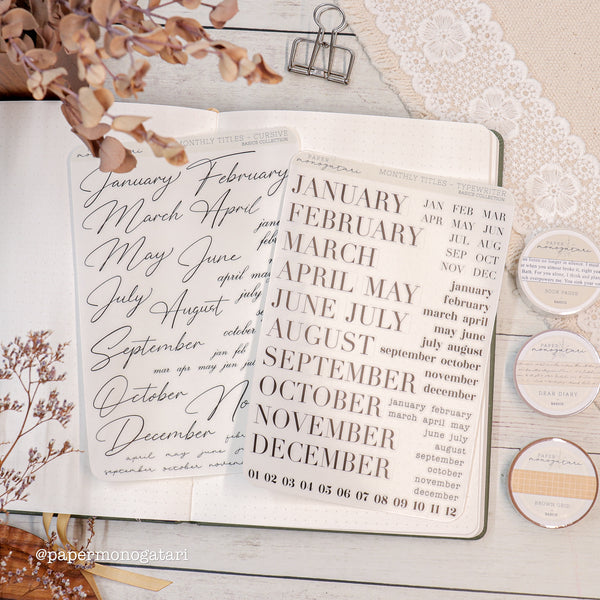 MONTHLY TITLES - CURSIVE
BASICS COLLECTION
January February
March April
May June
July August
September
October
December
january
february
march
april may
june
july
october
jan feb
mar apr may jun
april may june
september october november
PAPER
monogatari
MONTHLY TITLES - TYPEWRITER
BASICS COLLECTION
JANUARY
FEBRUARY
MARCH
APRIL MAY
JUNE JULY
AUGUST
SEPTEMBER
OCTOBER
NOVEMBER
DECEMBER
JAN FEB MAR
APR MAY JUN
JUL AUG
SEP OCT
NOV DEC
january
february
march april
may june
july august
september october
november
december
january february
march april may
june july
august
september
october
november
december
01 02 03 04 05 06 07 08 09 10 11 12
PAPER
monogatari
BOOK PAGES
PAPER
monogatari
DEAR DIARY
BASICS
PAPER
monogatari
BROWN GRID
BASICS
@papermonogatari